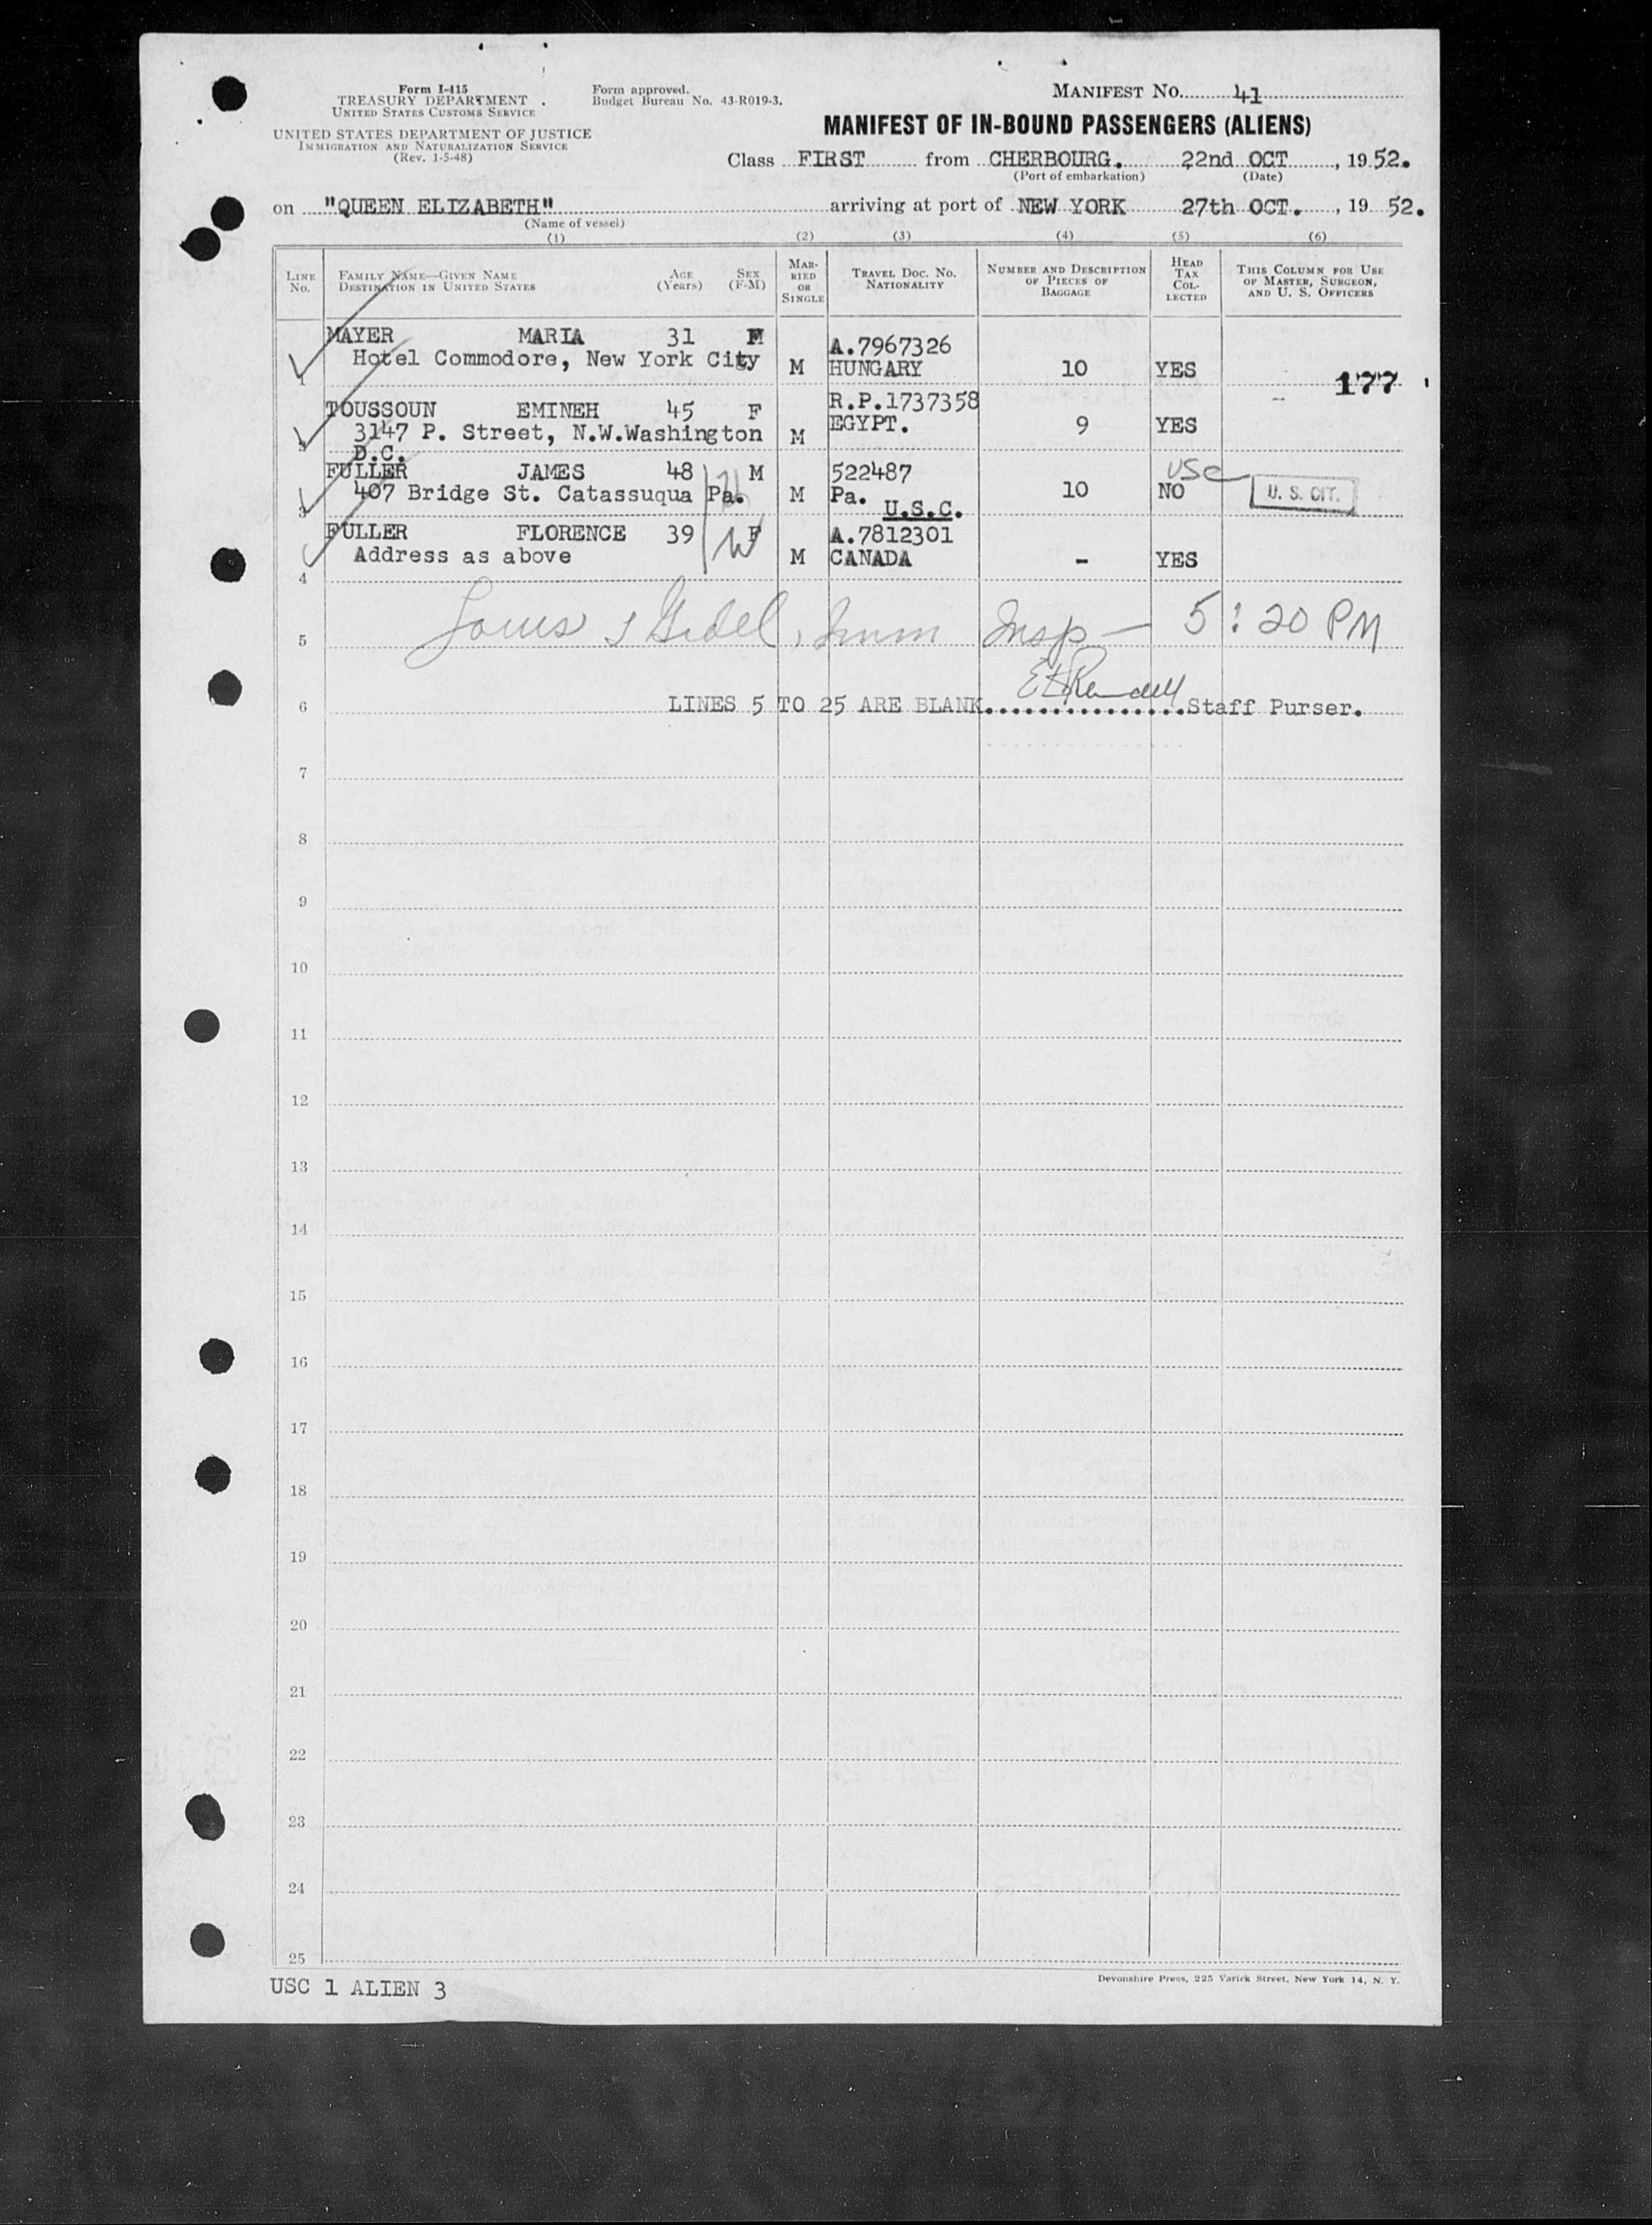 Form I-415
TREASURY DEPARTMENT
UNITED STATES CUSTOMS SERVICE
UNITED STATES DEPARTMENT OF JUSTICE
IMMIGRATION AND NATURALIZATION SERVICE
(Rev. 1-5-48)
Form approved.
Budget Bureau No. 43-R019-3.
MANIFEST NO. 41
MANIFEST OF IN-BOUND PASSENGERS (ALIENS)
Class FIRST from CHERBOURG. 22nd OCT, 1952.
(Port of embarkation) (Date)
on "QUEEN ELIZABETH" arriving at port of NEW YORK 27th OCT., 1952.
(Name of vessel)
(1) (2) (3) (4) (5) (6)
LINE NO.
FAMILY NAME—GIVEN NAME
DESTINATION IN UNITED STATES
AGE (Years)
SEX (F-M)
MARRIED OR SINGLE
TRAVEL DOC. NO. NATIONALITY
NUMBER AND DESCRIPTION OF PIECES OF BAGGAGE
HEAD TAX COLLECTED
THIS COLUMN FOR USE OF MASTER, SURGEON, AND U. S. OFFICERS
MAYER MARIA 31 F A.7967326
1 Hotel Commodore, New York City M HUNGARY 10 YES 177
TOUSSOUN EMINEH 45 F R.P.1737358
2 3147 P. Street, N.W.Washington M EGYPT. 9 YES
D.C.
FULLER JAMES 48 M 522487 USC
3 407 Bridge St. Catassuqua Pa. M Pa. 10 NO U. S. CIT.
U.S.C.
FULLER FLORENCE 39 F A.7812301
W
Address as above M CANADA - YES
4
5 Imm Insp — 5:20 PM
6 LINES 5 TO 25 ARE BLANK................Staff Purser.
7
8
9
10
11
12
13
14
15
16
17
18
19
20
21
22
23
24
25
USC 1 ALIEN 3
Devonshire Press, 225 Varick Street, New York 14, N. Y.